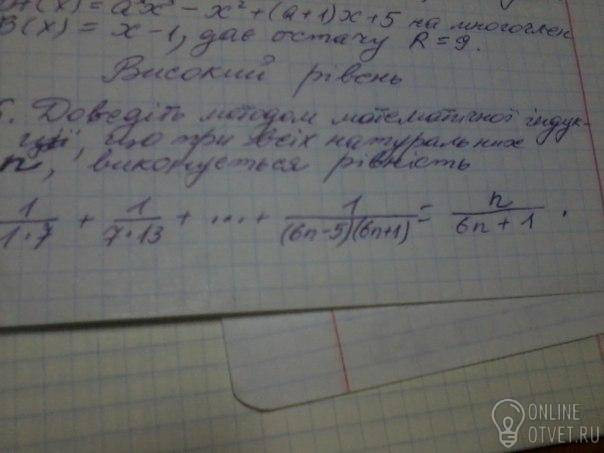 A(x) = a²x³ - x² + (a+1)x + 5 на многочлен
B(x) = x - 1, дає остачу R = 9.
Високий рівень
5. Доведіть методом математичної індук-
ції, що при всіх натуральних
n, виконується рівність
1/1·7 + 1/7·13 + ... + 1/(6n-5)(6n+1) = n/6n+1 .
ONLINE
OTVET.RU